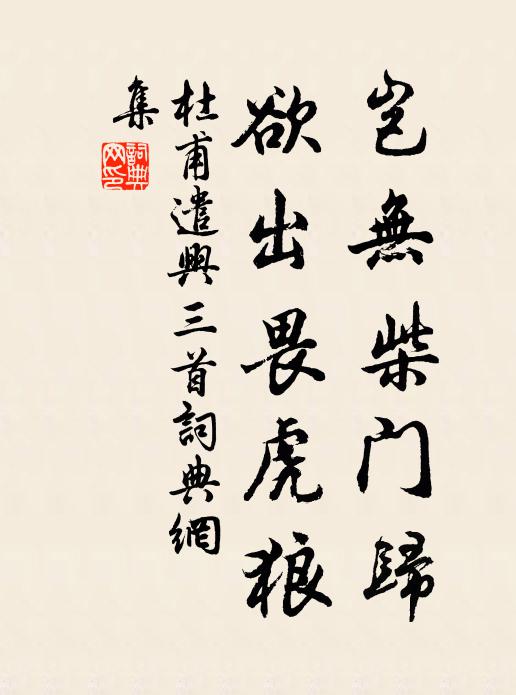 豈無柴門歸
欲出畏虎狼
杜甫遣興三首詞典網
集
詞典
网印